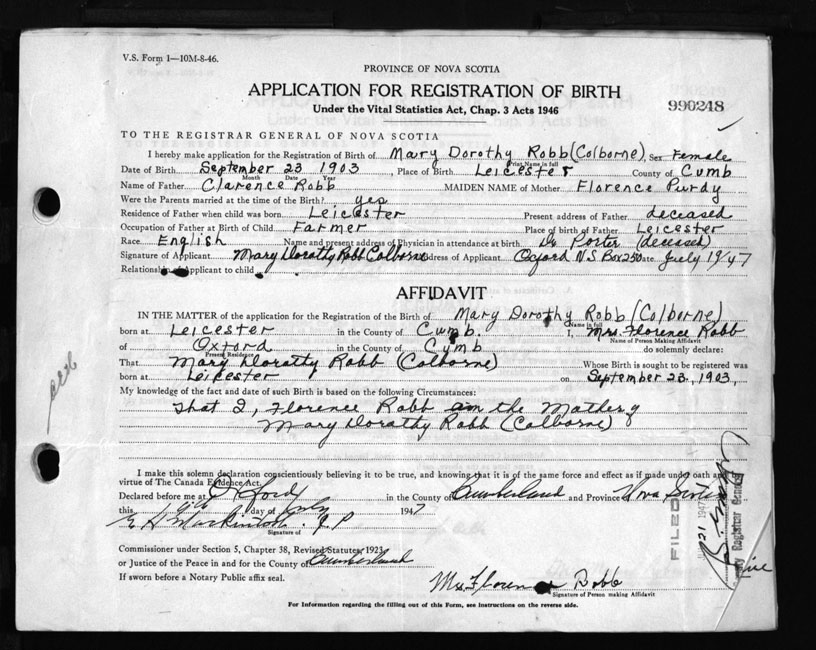 V.S. Form 1—10M-8-46.
PROVINCE OF NOVA SCOTIA
APPLICATION FOR REGISTRATION OF BIRTH
990248
Under the Vital Statistics Act, Chap. 3 Acts 1946
TO THE REGISTRAR GENERAL OF NOVA SCOTIA
I hereby make application for the Registration of Birth of Mary Dorothy Robb (Colborne), Sex Female
Print Name in full
Date of Birth September 23 1903, Place of Birth Leicester County of Cumb
Month Date Year
Name of Father Clarence Robb MAIDEN NAME of Mother Florence Purdy
Were the Parents married at the time of the Birth? yes
Residence of Father when child was born Leicester Present address of Father deceased
Occupation of Father at Birth of Child Farmer Place of birth of Father Leicester
Race English Name and present address of Physician in attendance at birth Dr Porter (deceased)
Signature of Applicant Mary Dorathy Robb Colborne Address of Applicant Oxford N.S Box 250 Date July 19/47
Relationship of Applicant to child
AFFIDAVIT
IN THE MATTER of the application for the Registration of the Birth of Mary Dorothy Robb (Colborne)
Name in full
born at Leicester in the County of Cumb. I, Mrs. Florence Robb
Name of Person Making Affidavit
of Oxford in the County of Cumb do solemnly declare:
Present Residence
That Mary Dorathy Robb (Colborne) Whose Birth is sought to be registered was
born at Leicester on September 23, 1903,
My knowledge of the fact and date of such Birth is based on the following Circumstances:
That I, Florence Robb am the Mother of
Mary Dorathy Robb (Colborne)
I make this solemn declaration conscientiously believing it to be true, and knowing that it is of the same force and effect as if made under oath and
virtue of The Canada Evidence Act.
Declared before me at Oxford in the County of Cumberland and Province Nova Scotia
this day of July 1947
Signature of J P
Commissioner under Section 5, Chapter 38, Revised Statutes, 1923
or Justice of the Peace in and for the County of Cumberland
If sworn before a Notary Public affix seal.
Mrs. Florence Robb
Signature of Person making Affidavit
For Information regarding the filling out of this Form, see instructions on the reverse side.
FILED
21 1947
Registrar General